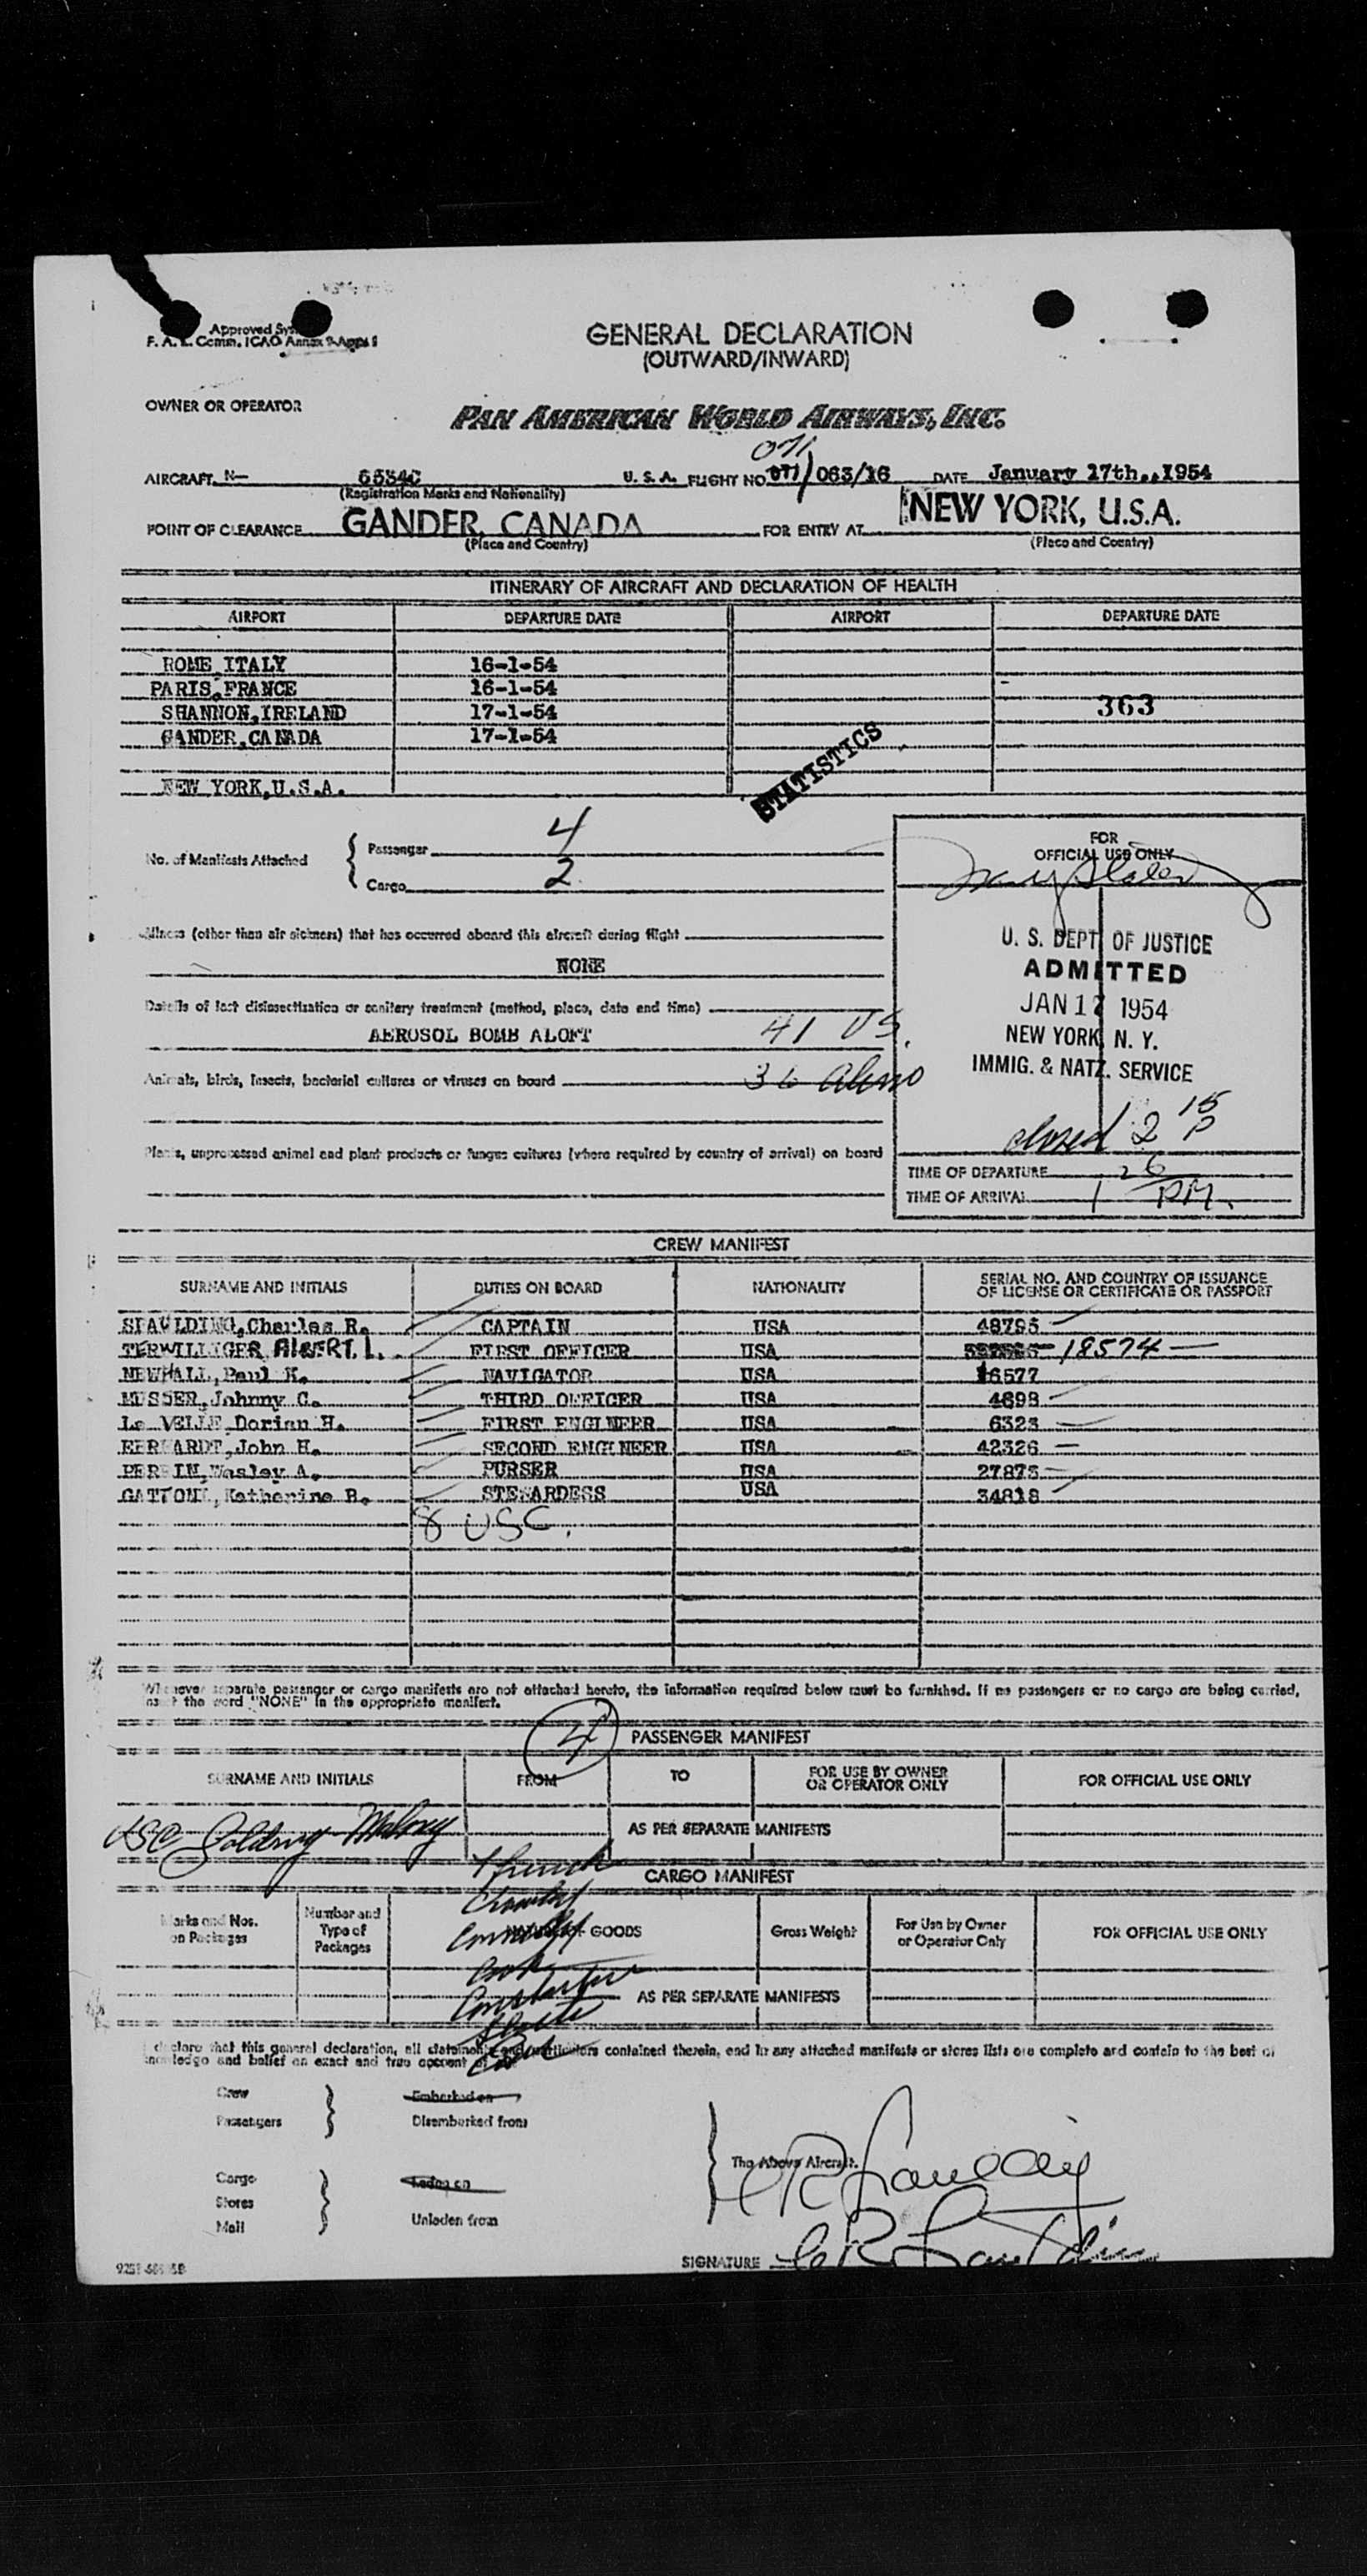 Approved
F. A. L. Comm. ICAO Annex 9-Appx 1
GENERAL DECLARATION
(OUTWARD/INWARD)
OWNER OR OPERATOR
PAN AMERICAN WORLD AIRWAYS, INC.
071
AIRCRAFT N- 6534C U. S. A. FLIGHT NO 071/063/16 DATE January 17th.,1954
(Registration Marks and Nationality)
POINT OF CLEARANCE GANDER, CANADA FOR ENTRY AT NEW YORK, U.S.A.
(Place and Country) (Place and Country)
ITINERARY OF AIRCRAFT AND DECLARATION OF HEALTH
AIRPORT DEPARTURE DATE AIRPORT DEPARTURE DATE
ROME,ITALY 16-1-54
PARIS,FRANCE 16-1-54
SHANNON,IRELAND 17-1-54 363
GANDER,CANADA 17-1-54
STATISTICS
NEW YORK,U.S.A.
No. of Manifests Attached { Passenger 4
Cargo 2
FOR
OFFICIAL USE ONLY
Illness (other than air sickness) that has occurred aboard this aircraft during flight
NONE
U. S. DEPT OF JUSTICE
ADMITTED
JAN 17 1954
NEW YORK, N. Y.
IMMIG. & NATZ. SERVICE
Details of last disinsectization or sanitary treatment (method, place, date and time)
AEROSOL BOMB ALOFT 41 US.
Animals, birds, insects, bacterial cultures or viruses on board 36
closed 2 15 P
Plants, unprocessed animal and plant products or fungus cultures (where required by country of arrival) on board
TIME OF DEPARTURE
TIME OF ARRIVAL 1 26 PM.
CREW MANIFEST
SURNAME AND INITIALS DUTIES ON BOARD NATIONALITY SERIAL NO. AND COUNTRY OF ISSUANCE
OF LICENSE OR CERTIFICATE OR PASSPORT
SPAULDING,Charles R. CAPTAIN USA 48795
TERWILLIGER ALBERT. L. FIRST OFFICER USA 18574
NEWHALL,Paul K. NAVIGATOR USA 16577
MUSSER,Johnny C. THIRD OFFICER USA 4698
La VELLE Dorian H. FIRST ENGINEER USA 6323
EBERHARDT,John H. SECOND ENGINEER USA 42326
PERRIN,Wesley A. PURSER USA 27875
GATTONI,Katherine B. STEWARDESS USA 34818
8 USC.
Whenever separate passenger or cargo manifests are not attached hereto, the information required below must be furnished. If no passengers or no cargo are being carried,
insert the word "NONE" in the appropriate manifest.
4 PASSENGER MANIFEST
SURNAME AND INITIALS FROM TO FOR USE BY OWNER
OR OPERATOR ONLY FOR OFFICIAL USE ONLY
USC
AS PER SEPARATE MANIFESTS
CARGO MANIFEST
Marks and Nos.
on Packages Number and
Type of
Packages NATURE OF GOODS Gross Weight For Use by Owner
or Operator Only FOR OFFICIAL USE ONLY
AS PER SEPARATE MANIFESTS
I declare that this general declaration, all statements and particulars contained therein, and in any attached manifests or stores lists are complete and contain to the best of
knowledge and belief an exact and true account of
Crew Embarked on
Passengers Disembarked from
The Above Aircraft.
Cargo Laden on
Stores
Mail Unladen from
SIGNATURE